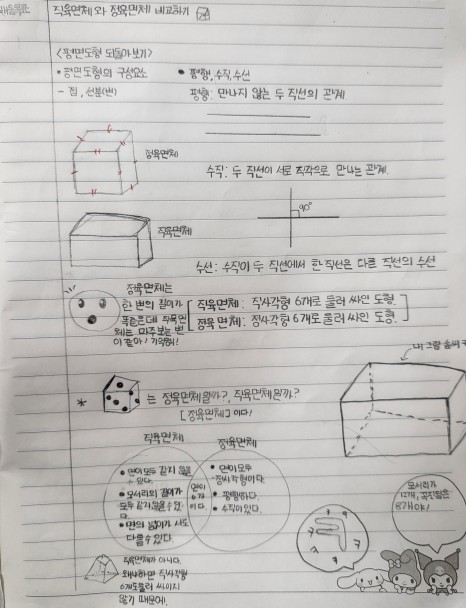 배움목표
직육면체와 정육면체 비교하기
<평면도형 되돌아보기>
• 평면도형의 구성요소
• 평행, 수직, 수선
- 점, 선분(변)
평행: 만나지 않는 두 직선의 관계
정육면체
수직: 두 직선이 서로 직각으로 만나는 관계.
90°
직육면체
수선: 수직인 두 직선에서 한 직선은 다른 직선의 수선
정육면체는
한 변의 길이가
똑같은데 직육면
체는 마주보는 변
이 같아! 기억해!
직육면체: 직사각형 6개로 둘러 싸인 도형.
정육면체: 정사각형 6개로 둘러 싸인 도형.
내 그림 솜씨
* 는 정육면체일까?, 직육면체일까?
[정육면체]이다!
직육면체
정육면체
• 면이 모두 같지 않을
수 있다.
• 모서리의 길이가
모두 같지 않을 수 있
다.
• 면의 넓이가 서로
다를 수 있다.
면이
6개
이다.
• 면이 모두
정사각형이다.
• 평행하다.
• 수직이 있다.
모서리가
12개, 꼭짓점은
8개야!
직육면체가 아니다.
왜냐하면 직사각형
6개로 둘러 싸이지
않기 때문에.